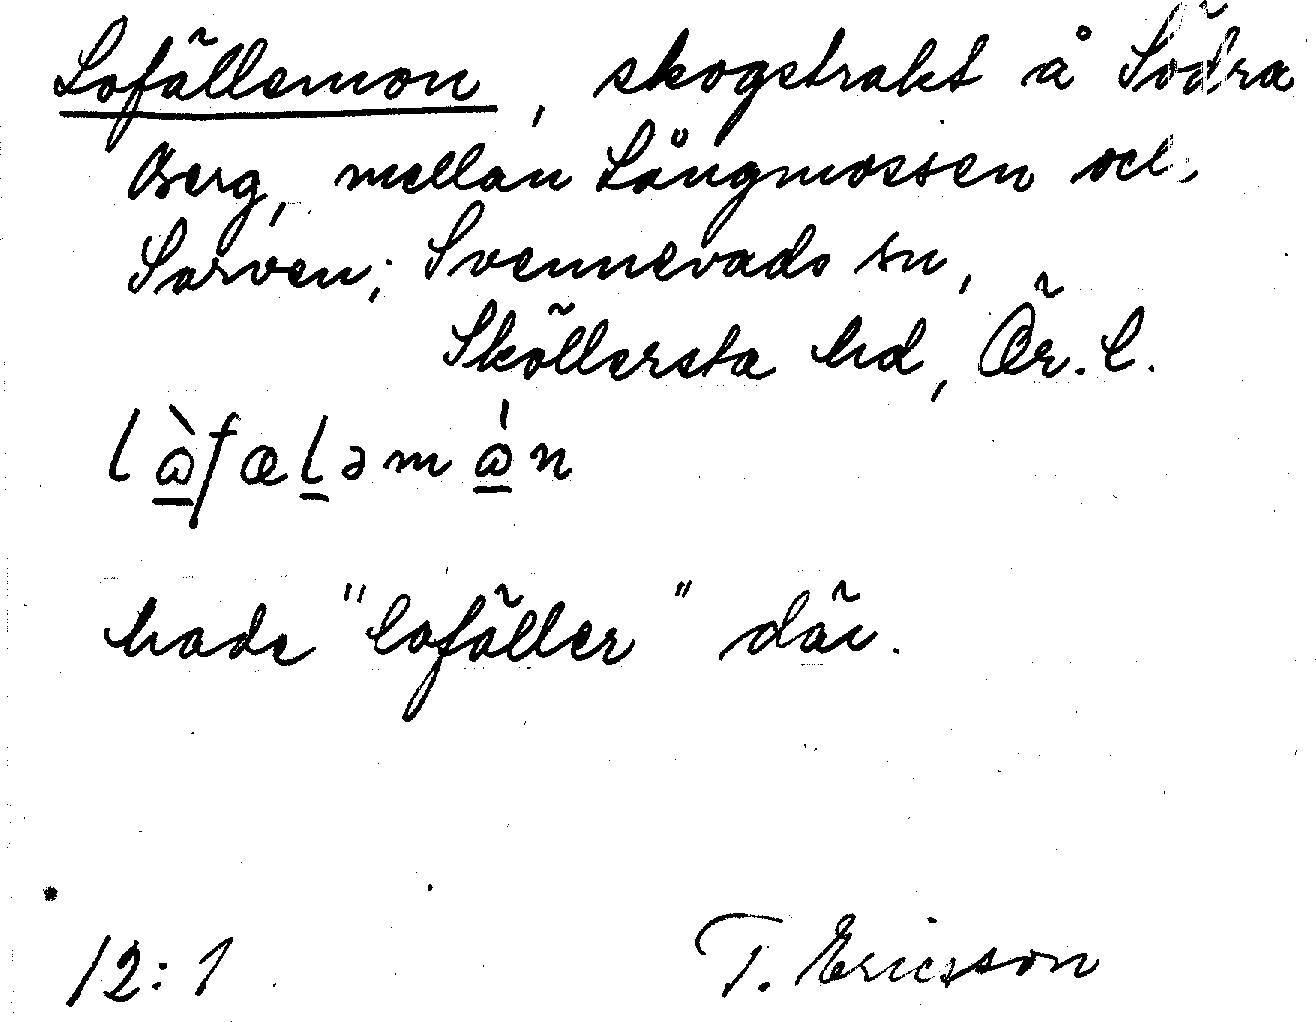 Lofällemon, skogstrakt å Södra
Berg, mellan Långmossen och
Sarven; Svennevads sn,
Sköllersta hd, Ör. l.
lò̲fæl̲əmó̲n
hade "lofäller" där.
12:1 T. Ericsson